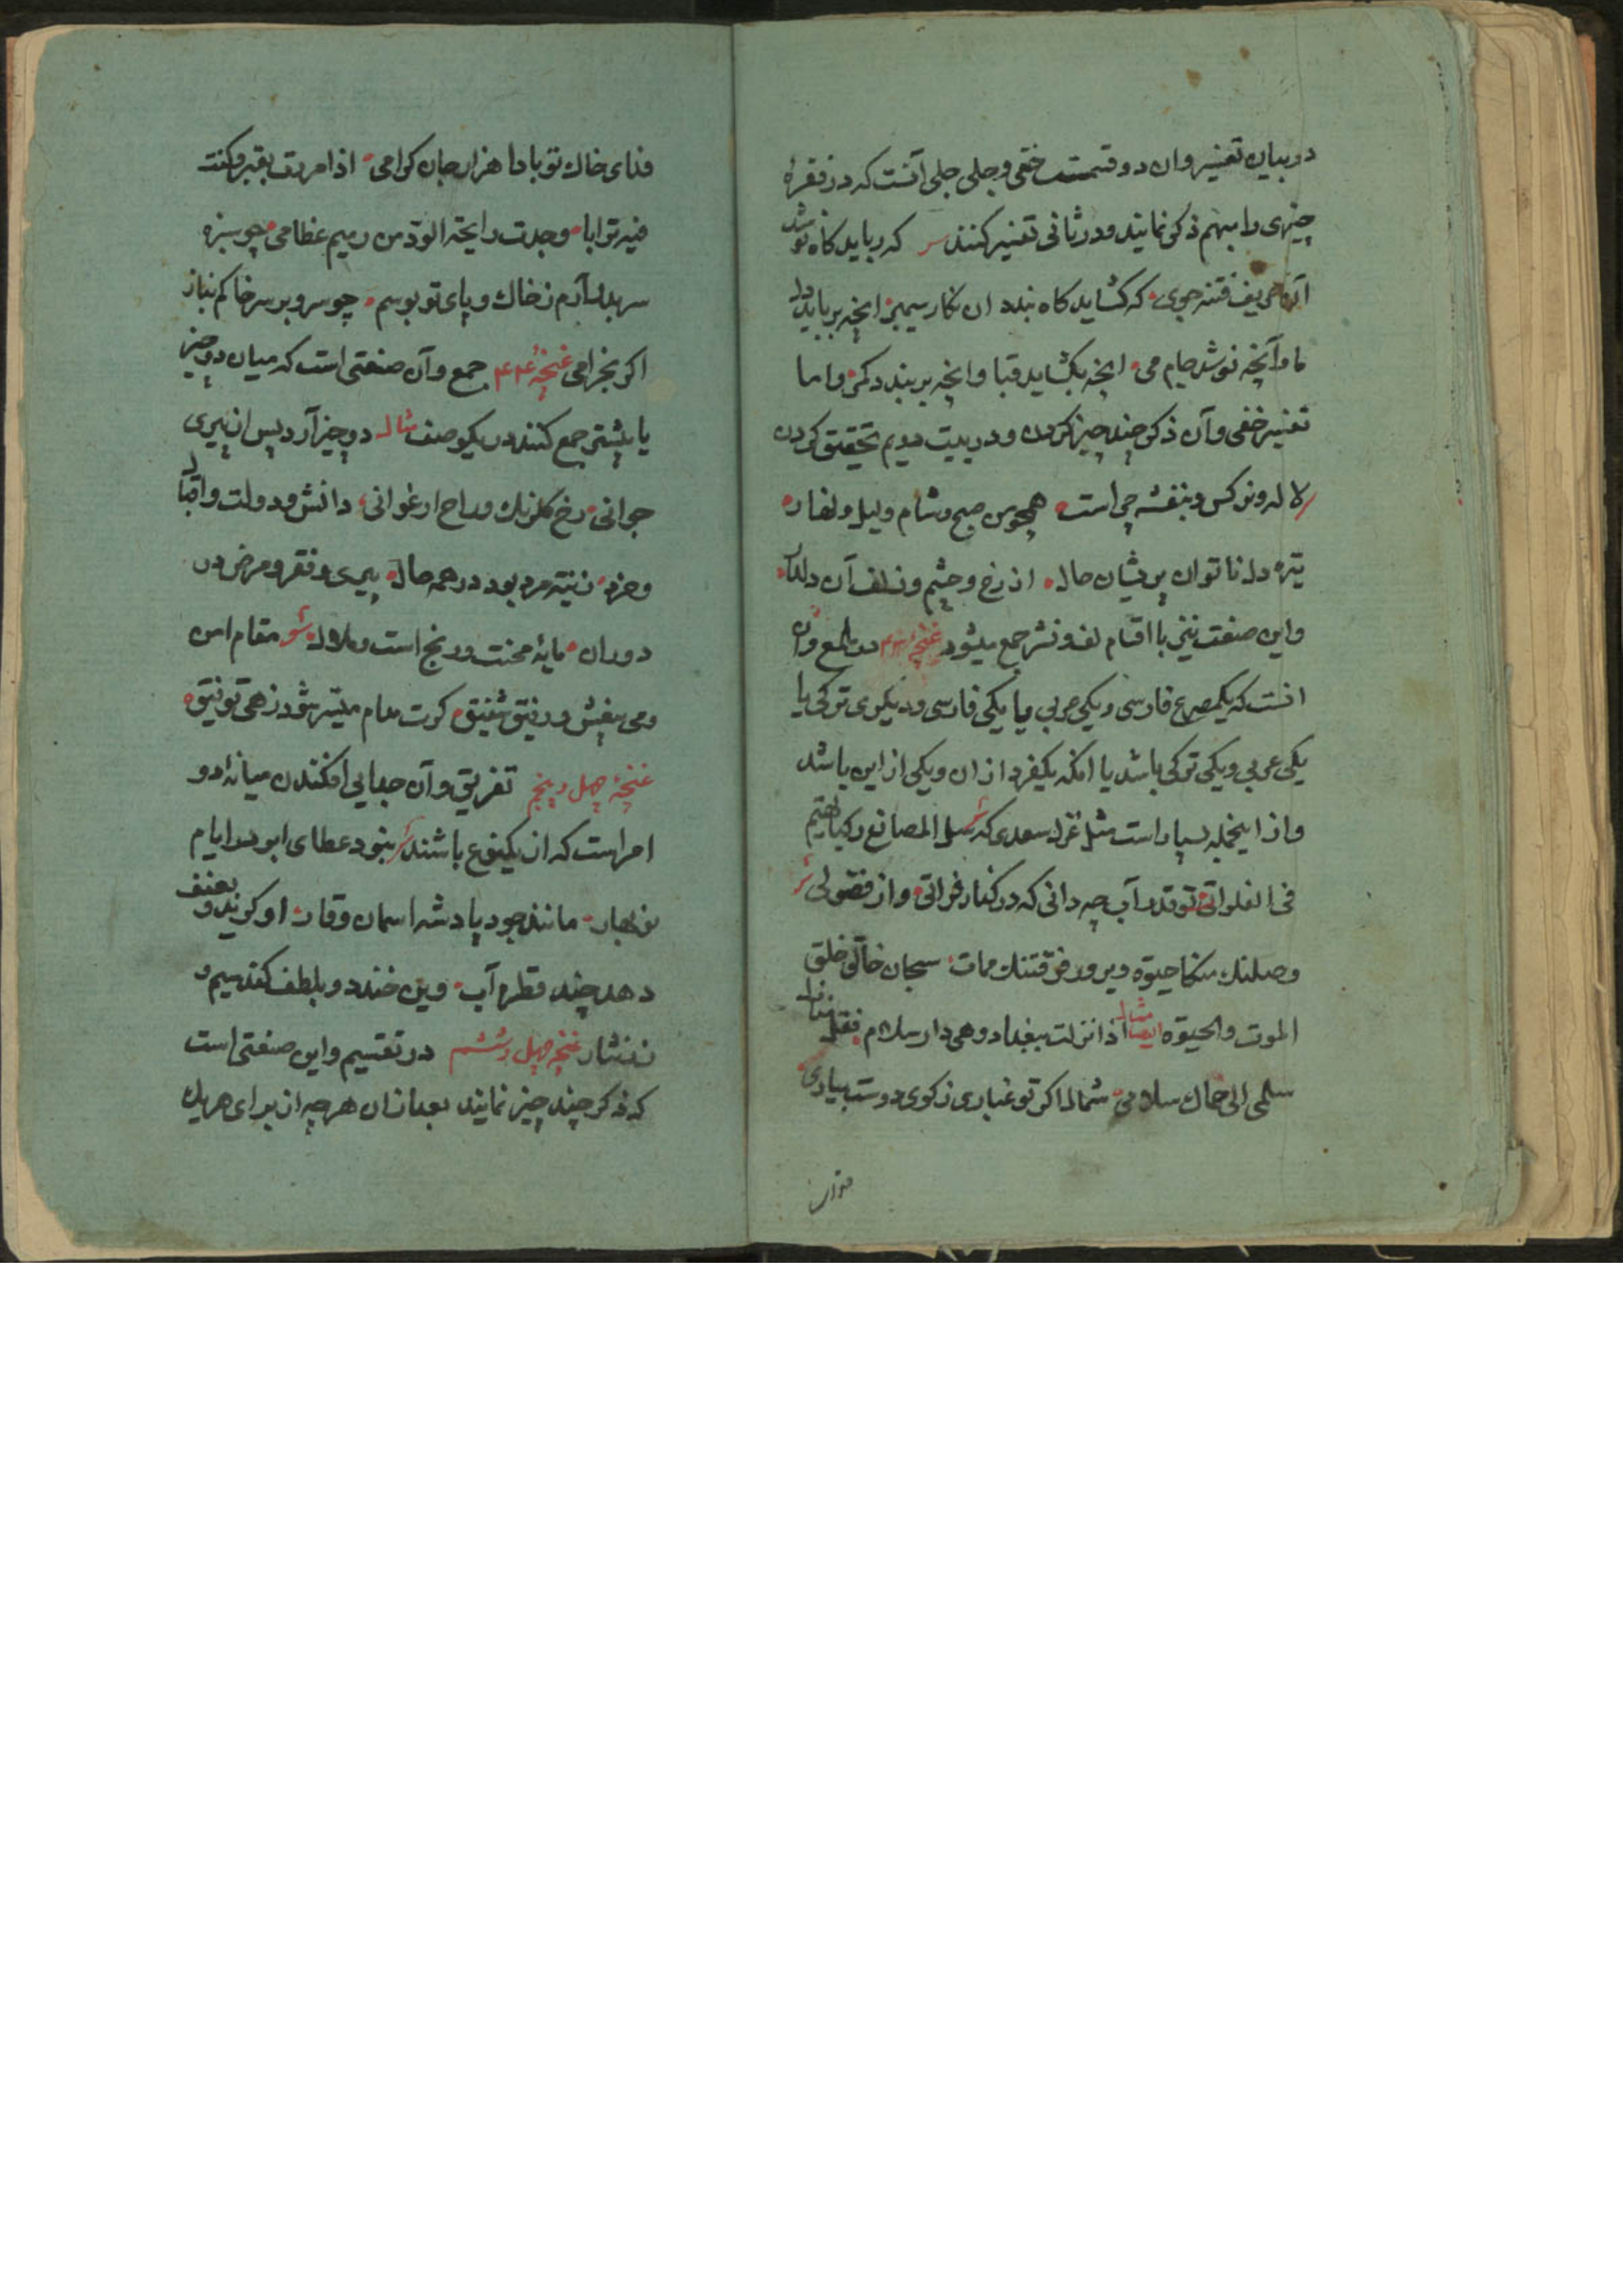 در بیان تفسیر وان دو قسمت خفی و جلی جلی آنست که در فقرهٔ
چیزی را مبهم ذکر نمایند و در ثانی تفسیر کنند که رباید کاه نوشد
آن حریف فتنه جوی که کشاید کاه بندد ان نکار سیمبر انچه برباید دل
ما وآنچه نوشد جام می انچه بکشاید قبا وانچه بر بندد کمر واما
تفسیر خفی وآن ذکر چند چیز کردن ودر بیت دویم تحقیق کردن
لاله ونرکس وبنفشه چراست همچو من صبح وشام ولیل ونهار
تیره دل ناتوان پریشان حال از رخ وچشم وزلف آن دلدار
واین صنعت نیز با اقسام لف ونشر جمع میشود غنچهٔ ۴۳ در ملمع وان
انست که یکمصرع فارسی ویکی عربی ویا یکی فارسی ودیکری ترکی یا
یکی عربی ویکی ترکی باشد یا انکه یکفرد از ان ویکی از این باشد
واز اینجمله بسیار است مثل غزل سعدی که سل المصانع رکبا تهیم
فی الفلواتی تو قدر آب چه دانی که در کنار فراتی واز فضولی
وصلنك منکا حیوة ویرور فرقتنك ممات سبحان خالق خلق
الموت والحیوة ایضا مثال اذا نزلت ببغداد وهی دار سلام فقل
سلمی الی خال سلامی شمالا اکر تو غباری ز کوی دوست بیاری
فدای خاك تو بادا هزار جان کرامی اذا مررت بقبر وکنت
فیه ترابا وجدت رایحة الود من رمیم عظامی چو سبزه
سر بدر آرم ز خاك وپای تو بوسم چو سرو بر سر خاکم بناز
اکر بخرامی غنچهٔ ۴۴ جمع وآن صنعتی است که میان دو چیز
یا بیشتر جمع کنند در یکوصف مثال دو چیز آرد پس از پیری
جوانی رخ کلرنك وراح ارغوانی دانش ودولت واقبال
وخرد زینت مرد بود در همه حال پیری وفقر ومرض در
دوران مایهٔ محنت ورنج است وملال مقام امن
ومی بیغش ورفیق شفیق کرت مدام میسر شود زهی توفیق
غنچهٔ چهل وپنجم تفریق وآن جدایی افکندن میانهٔ دو
امر است که از یکنوع باشند نبود عطای ابر در ایام
نوبهار مانند جود پادشه اسمان وقار او کرید وبعنف
دهد چند قطره آب وین خندد وبلطف کند سیم و
زر نثار غنچهٔ چهل وششم در تقسیم واین صنعتی است
که ذکر چند چیز نمایند بعد از ان هر چه از برای هر یك